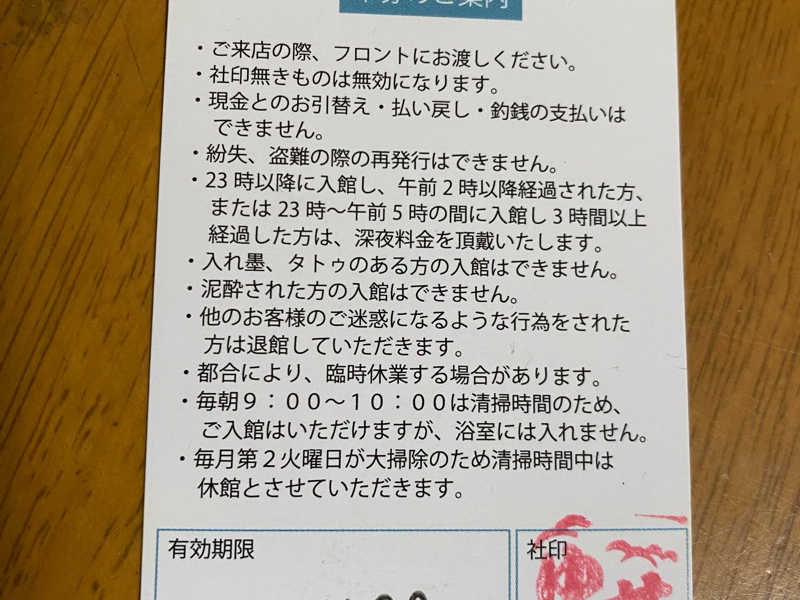 ・ご来店の際、フロントにお渡しください。
・社印無きものは無効になります。
・現金とのお引替え・払い戻し・釣銭の支払いは
できません。
・紛失、盗難の際の再発行はできません。
・23時以降に入館し、午前2時以降経過された方、
または23時～午前5時の間に入館し3時間以上
経過した方は、深夜料金を頂戴いたします。
・入れ墨、タトゥのある方の入館はできません。
・泥酔された方の入館はできません。
・他のお客様のご迷惑になるような行為をされた
方は退館していただきます。
・都合により、臨時休業する場合があります。
・毎朝９：００～１０：００は清掃時間のため、
ご入館はいただけますが、浴室には入れません。
・毎月第２火曜日が大掃除のため清掃時間中は
休館とさせていただきます。
有効期限
社印